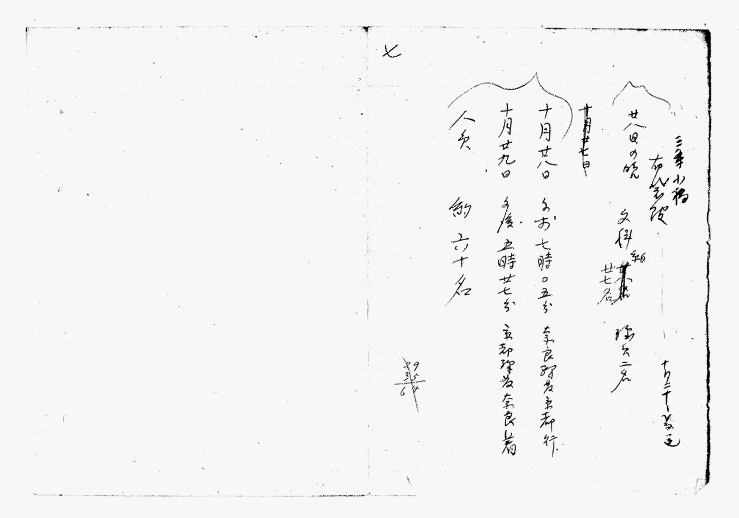 三条小橋
布袋館
廿八日の晩 文科 約 廿七名 職員二名
十月廿七日
十月廿八日 午前七時〇五分 奈良駅発京都行
十月廿九日 午後五時廿七分 京都駅発奈良着
人員 約六十名
七